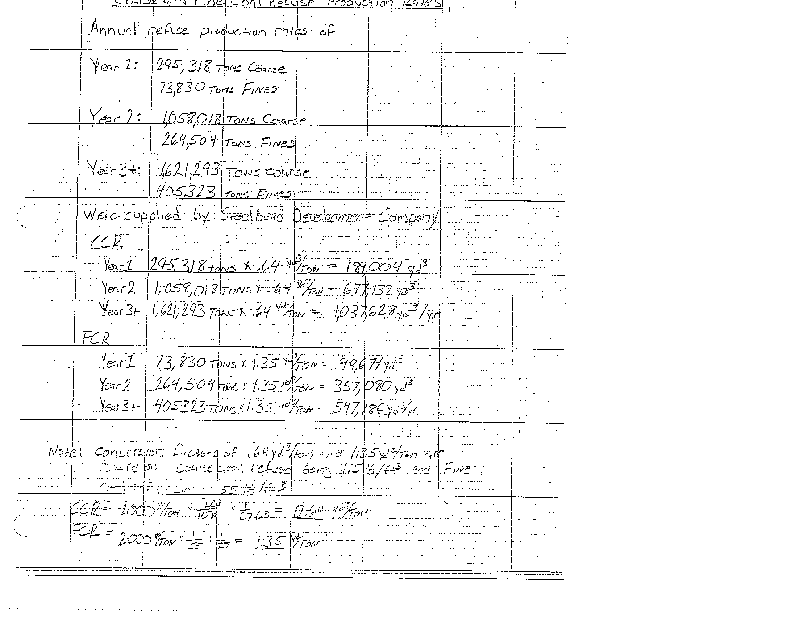 Refuse Production Rates
Annual refuse production rates of
Year 1: 295,318 Tons Coarse
73,830 Tons Fines
Year 2: 1,058,018 Tons Coarse
264,504 Tons Fines
Year 3+: 1,621,293 Tons Coarse
405,323 Tons Fines
Were supplied by Development Company
CCR
Year 1 295,318 Tons x .64 yd³/Ton = 189,004 yd³
Year 2 1,058,018 Tons x .64 yd³/Ton = 677,132 yd³
Year 3+ 1,621,293 Tons x .64 yd³/Ton = 1,037,628 yd³/yr
FCR
Year 1 73,830 Tons x 1.35 yd³/Ton = 99,671 yd³
Year 2 264,504 Tons x 1.35 yd³/Ton = 357,080 yd³
Year 3+ 405323 Tons x 1.35 yd³/Ton = 547,186 yd³/yr
Note: Conversion factors of .64 yd³/ton and 1.35 yd³/ton are
refuse being 115 lb/ft³ and Fine
55 lb/ft³
CCR =
FCR = 2000 #/Ton = 1.35 yd³/Ton